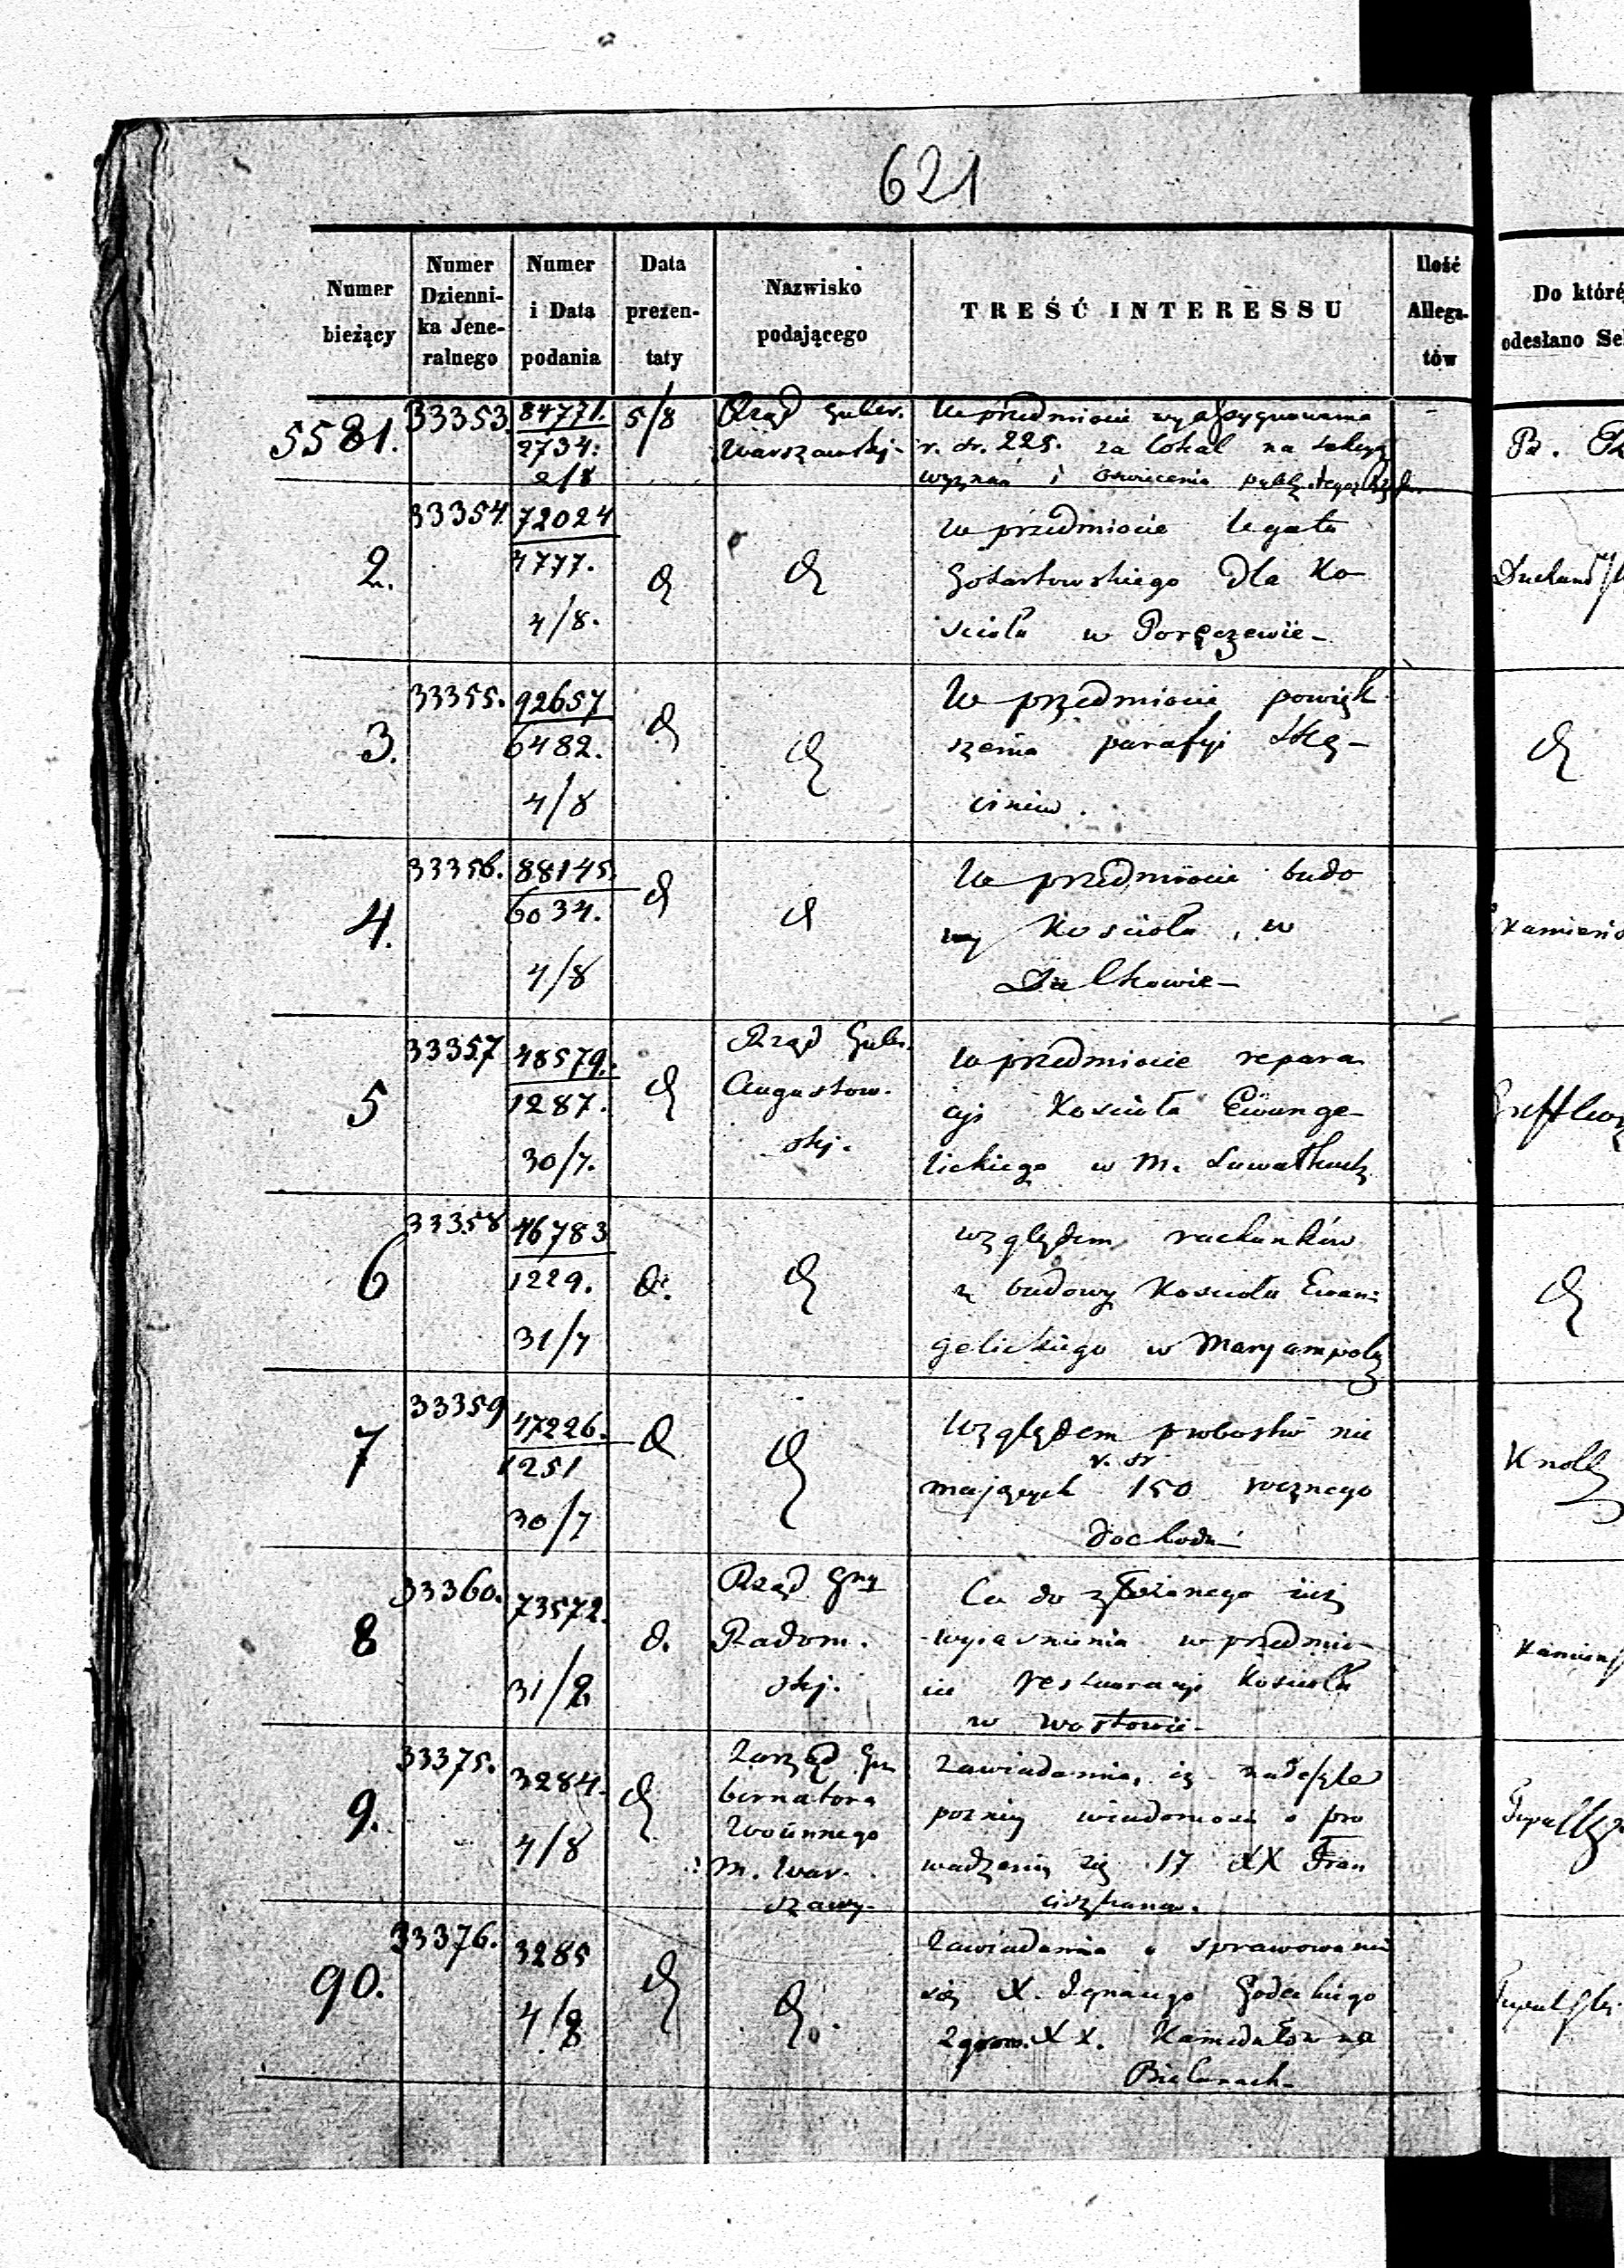 621
Numer bieżący
Numer Dzienni-ka Jene-ralnego
Numer i Data podania
Data prezen-taty
Nazwisko podającego
TREŚĆ INTERESSU
Ilość Allega-tów
Do które
odesłano Se
5581.
33353.
84771.
2734.
2/8
5/8
Rząd Guber.
Warszawskj-
W przedmiocie wyassygnowania
r. sr. 225. za lokal na
wyznań i oswiecenia publ.
2.
33354
72024
4777.
4/8.
d
d
w przedmiocie legatu
Gotartowskiego dla Ko-
sciola w Poręczewie-
3.
33355.
92657
6482.
4/8
d
d
W przedmiocie powięk
szenia parafji
d
4.
33356.
88145.
6034.
4/8
d
d
W przedmiocie budo
wy Kosciola, w
Dalkowie-
5
33357
48579.
1287.
30/7.
d
Rząd Gub.
Augustow.
skj.
w przedmiocie repara
cji Kosciola Ewange-
lickiego w M. Suwalkach
6
33358
46783
1229.
31/7
d.
d
względem rachunków
z budowy Kosciola Ewan=
gelickiego w Maryampolu
d
7
33359
47226.
1251
30/7
d
d
Względem probostw nie
r. sr
mających 150 rocznego
dochodu
Knoll
8
33360.
73572.
31/8
d.
Rząd Gny
Radom.
skj.
Co do złożonego
wyiasnienia w przedmio-
cie restauracji Kosciola
w
9.
33375.
3284.
4/8
d
Zarząd Gu
bernatora
Woiennego
M. War.
szawy-
Zawiadamia, iz nadeszle
pozniey wiadomosci o pro
wadzeniu się 17 XX Fran
ciszkanow.
90.
33376.
3285
4/8
d
d.
Zawiadamia o sprawowaniu
się X. Ignacego Godeckiego
Zgrom. XX. Kamedulów na
Bielanach-